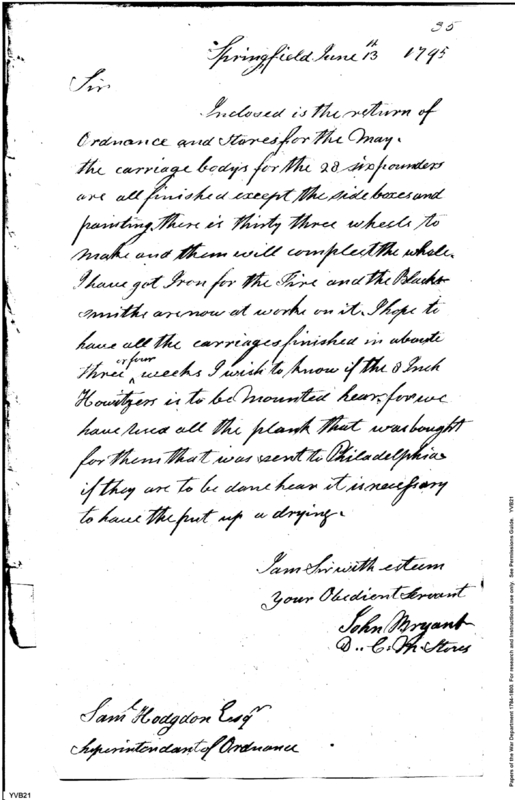 35
Springfield June 13th 1795
Sir
Inclosed is the return of
Ordnance and Stores for the May.
the carriage bodys for the 28 six pounders
are all finished except the side boxes and
painting, there is thirty three wheels to
make and them will compleet the whole.
I have got Iron for the Tire and the Black
smiths are now at worke on it. I hope to
have all the carriages finished in aboute
three or four weeks I wish to know if the 8 Inch
Howitzers is to be Mounted hear, for we
have used all the plank that was bought
for them that was sent to Philadelphia
if they are to be done hear it is necessary
to have the put up a drying.
I am Sir with esteem
your Obedient Servant
John Bryant
D.. C. M. Stores
Saml Hodgdon Esqr
Superintendant of Ordnance
YVB21
Papers of the War Department 1784-1803. For research and instructional use only. See Permissions Guide. YVB21